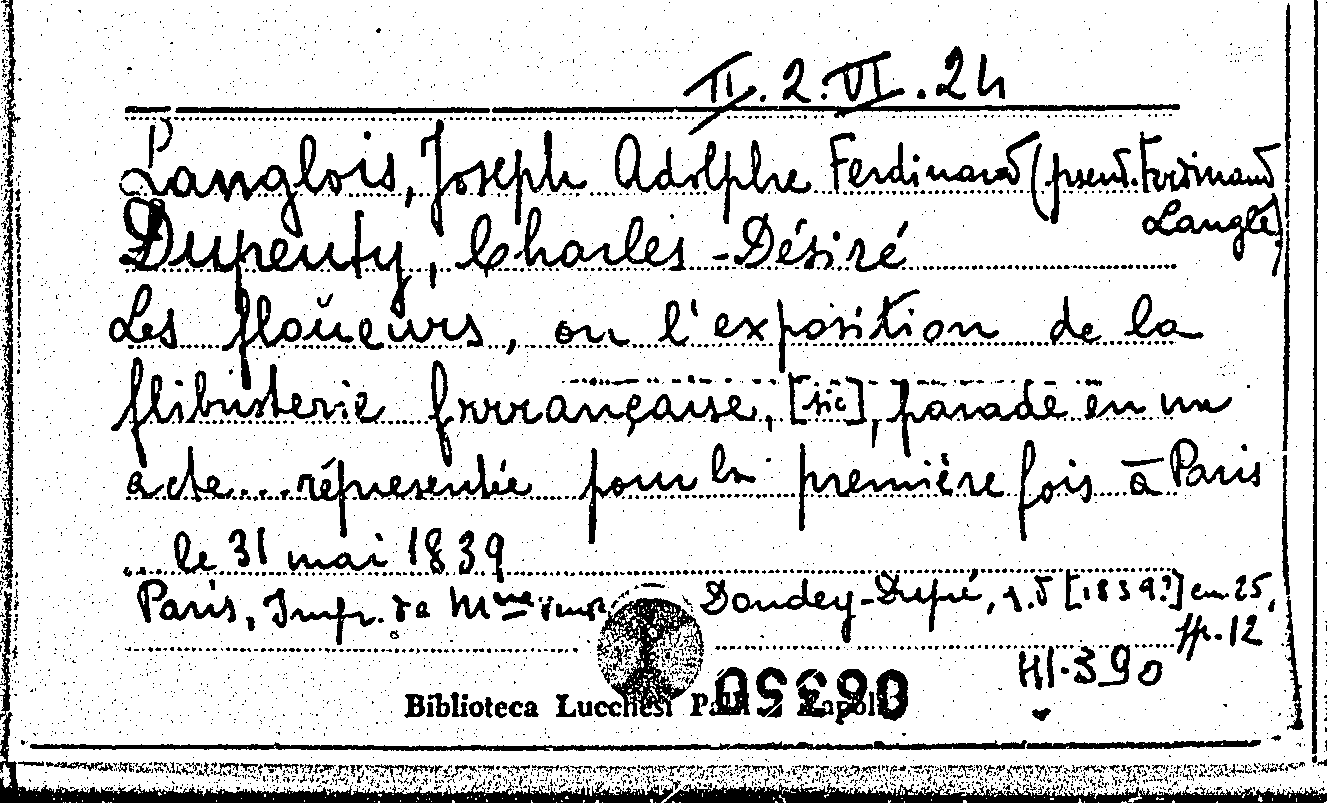 II.2.VI.24
Langlois, Joseph Adolphe Ferdinand (pseud. Ferdinand
Langlé)
Dupeuty, Charles-Désiré
Les floüeurs, ou l'exposition de la
flibusterie frrrançaise, [sic], parade en un
acte... répresentée pour la première fois à Paris
... le 31 mai 1839
Paris, Impr. de Mme Dondey-Dupré, s.d [1839?] cm. 25,
pp. 12
HI.390
Biblioteca Lucchesi Palli